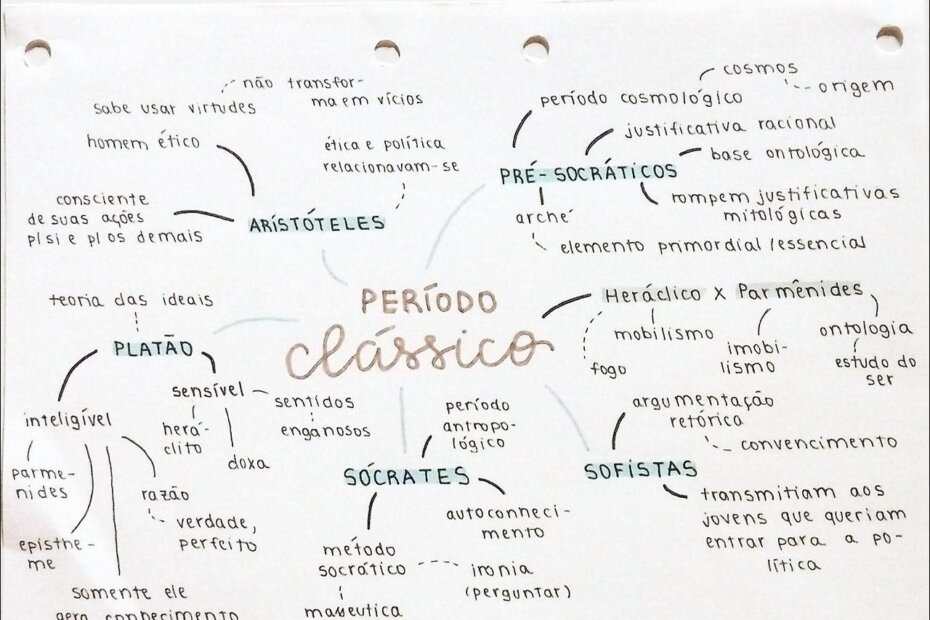 não transfor-
ma em vícios
sabe usar virtudes
homem ético
ética e política
relacionavam-se
consciente
de suas ações
p/si e p/ os demais
ARISTÓTELES
cosmos
origem
período cosmológico
justificativa racional
base ontológica
PRÉ-SOCRÁTICOS
rompem justificativas
mitológicas
arché
elemento primordial/essencial
PERÍODO
clássico
Heráclico x Parmênides
mobilismo
imobi-
lismo
ontologia
estudo do
ser
fogo
teoria das ideais
PLATÃO
sensível
sentidos
enganosos
herá-
clito
doxa
inteligível
parme-
nides
razão
verdade,
perfeito
episthe-
me
somente ele
gera conhecimento
período
antropo-
lógico
SÓCRATES
autoconheci-
mento
método
socrático
ironia
(perguntar)
maieutica
argumentação
retórica
convencimento
SOFISTAS
transmitiam aos
jovens que queriam
entrar para a po-
lítica